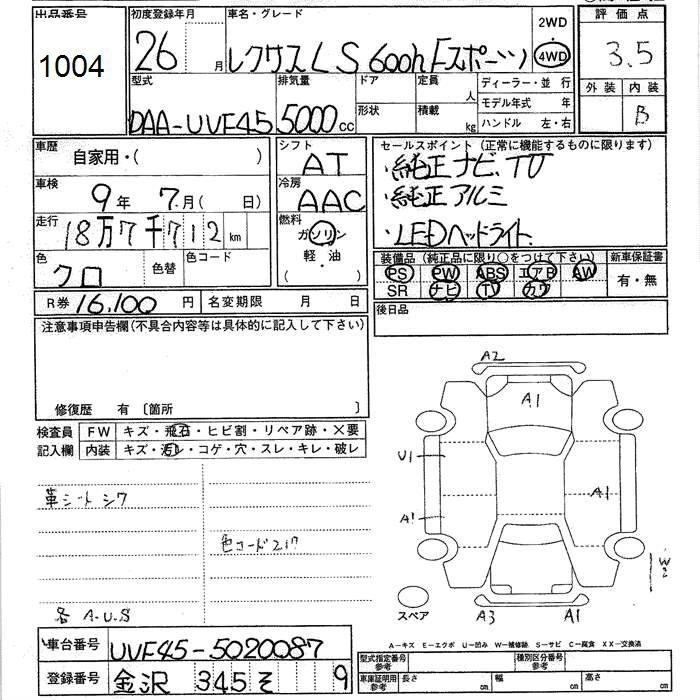 出品番号
1004
初度登録年月
26 月
車名・グレード
レクサスLS600h Fスポーツ
2WD
4WD
評価点
3.5
外装 内装
B
型式
DAA-UVF45
排気量
5000cc
ドア
形状
定員
人
積載
kg
ディーラー・並行
モデル年式 年
ハンドル 左・右
車歴
自家用・( )
車検
9年 7月( 日)
走行
18万7千712km
色
クロ
色替
色コード
R券 16,100円
名変期限 月 日
シフト
AT
冷房
AAC
燃料
ガソリン
軽油
(・)
セールスポイント(正常に機能するものに限ります)
・純正ナビ.TV
・純正アルミ
・LEDヘッドライト
装備品(純正品に限り○をつけて下さい)
PS PW ABS エアB AW
SR ナビ TV カワ
新車保証書
有・無
後日品
注意事項申告欄(不具合内容等は具体的に記入して下さい)
修復歴 有〔箇所 〕
検査員
記入欄
FW キズ・飛石・ヒビ割・リペア跡・×要
内装 キズ・汚レ・コゲ・穴・スレ・キレ・破レ
革シートシワ
色コード217
各A.U.S
A2
A1
U1
A1
A1
W2
スペア
A3
A1
A－キズ E－エクボ U－凹み W－補修跡 S－サビ C－腐食 XX－交換済
車台番号
UVF45-5020087
登録番号
金沢 345 そ 9
型式指定番号
参考
種別区分番号
参考
車庫証明用
参考
長さ cm
幅 cm
高さ cm